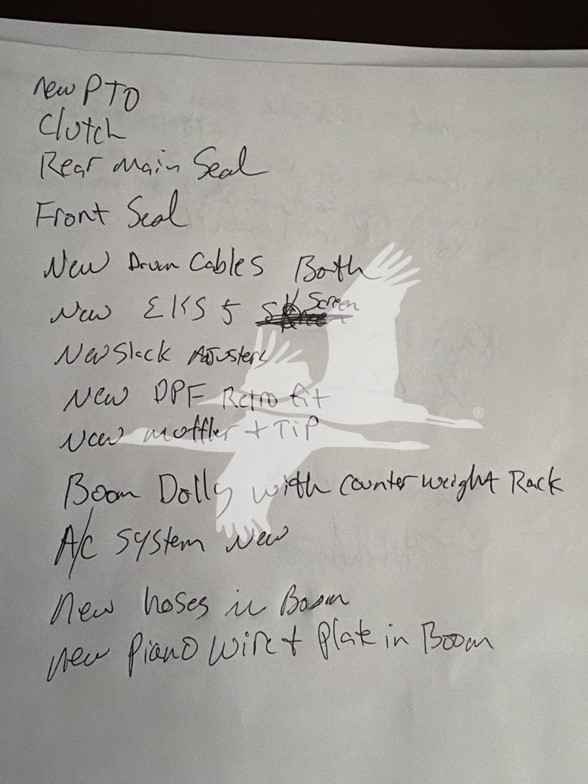 new PTO
Clutch
Rear main Seal
Front Seal
New Drum Cables Both
New EKS 5 Screen
New Slack Adjusters
New DPF Retro fit
New moffler + Tip
Boom Dolly with counter weight Rack
A/C System New
New hoses in Boom
new piano wire + plate in Boom
®